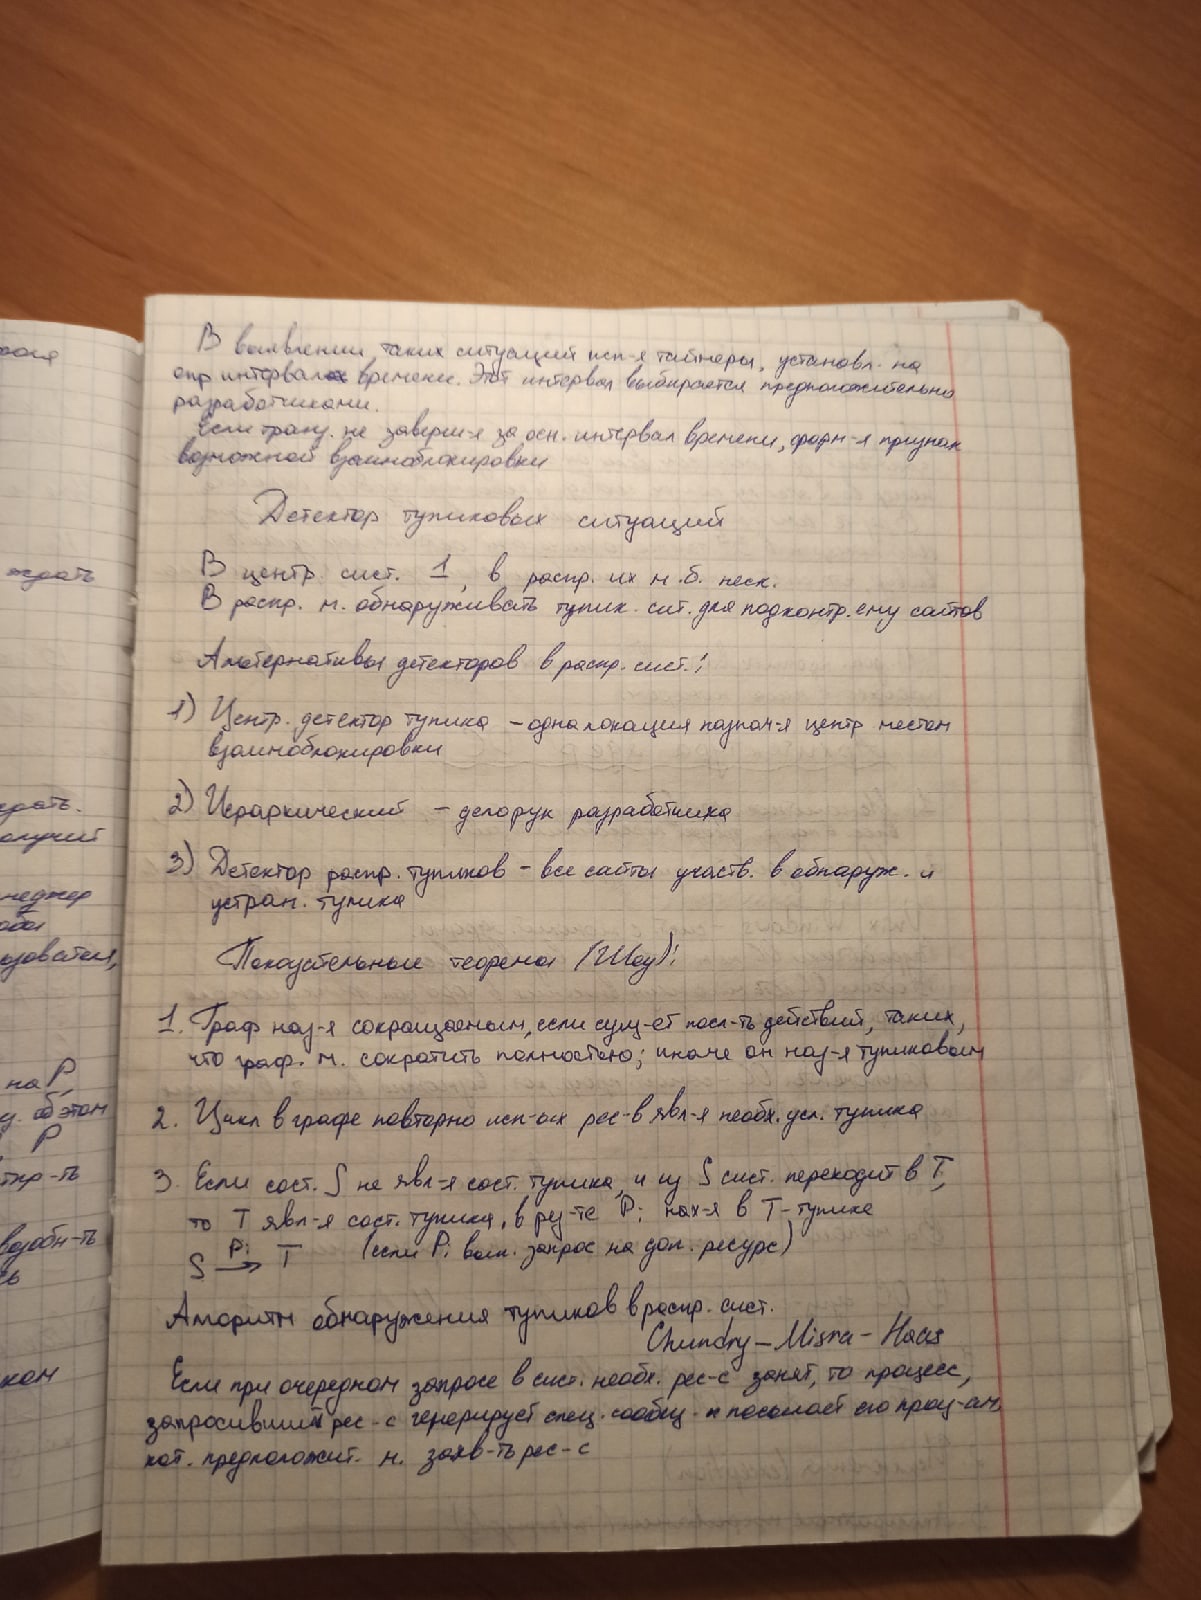 В выявлении таких ситуаций исп-я таймеры, установл. на
опр интервал времени. Этот интервал выбирается предположительно
разработчиками.
Если транз. не заверш-я за осн. интервал времени, форм-я признак
возможной взаимоблокировки
Детектор тупиковых ситуаций
В центр. сист. 1, в распр. их м.б. неск.
В распр. м. обнаруживать тупик. сит. для подконтр. ему сайтов
Альтернативы детекторов в распр. сист.:
1) Центр. детектор тупика – одна локация назнач-я центр местом
взаимоблокировки
2) Иерархический – дело рук разработчика
3) Детектор распр. тупиков – все сайты участв. в обнаруж. и
устран. тупика
теоремы (Шоу):
1. Граф наз-я сокращаемым, если сущ-ет посл-ть действий, таких,
что граф. м. сократить полностью; иначе он наз-я тупиковым
2. Цикл в графе повторно исп-ых рес-в явл-я необх. усл. тупика
3. Если сост. S не явл-я сост. тупика, и из S сист. переходит в T,
то T явл-я сост. тупика, в рез-те Pi нах-я в T-тупике
S Pi→ T (если Pi вып. запрос на доп. ресурс)
Алгоритм обнаружения тупиков в распр. сист.
Chundry – Misra – Haas
Если при очередном запросе в сист. необх. рес-с занят, то процесс,
запросивший рес-с генерирует спец. сообщ. и посылает его проц-ам,
кот. предположит. м. рес-с
ждать
на P,
об этом
P
возобн-ть